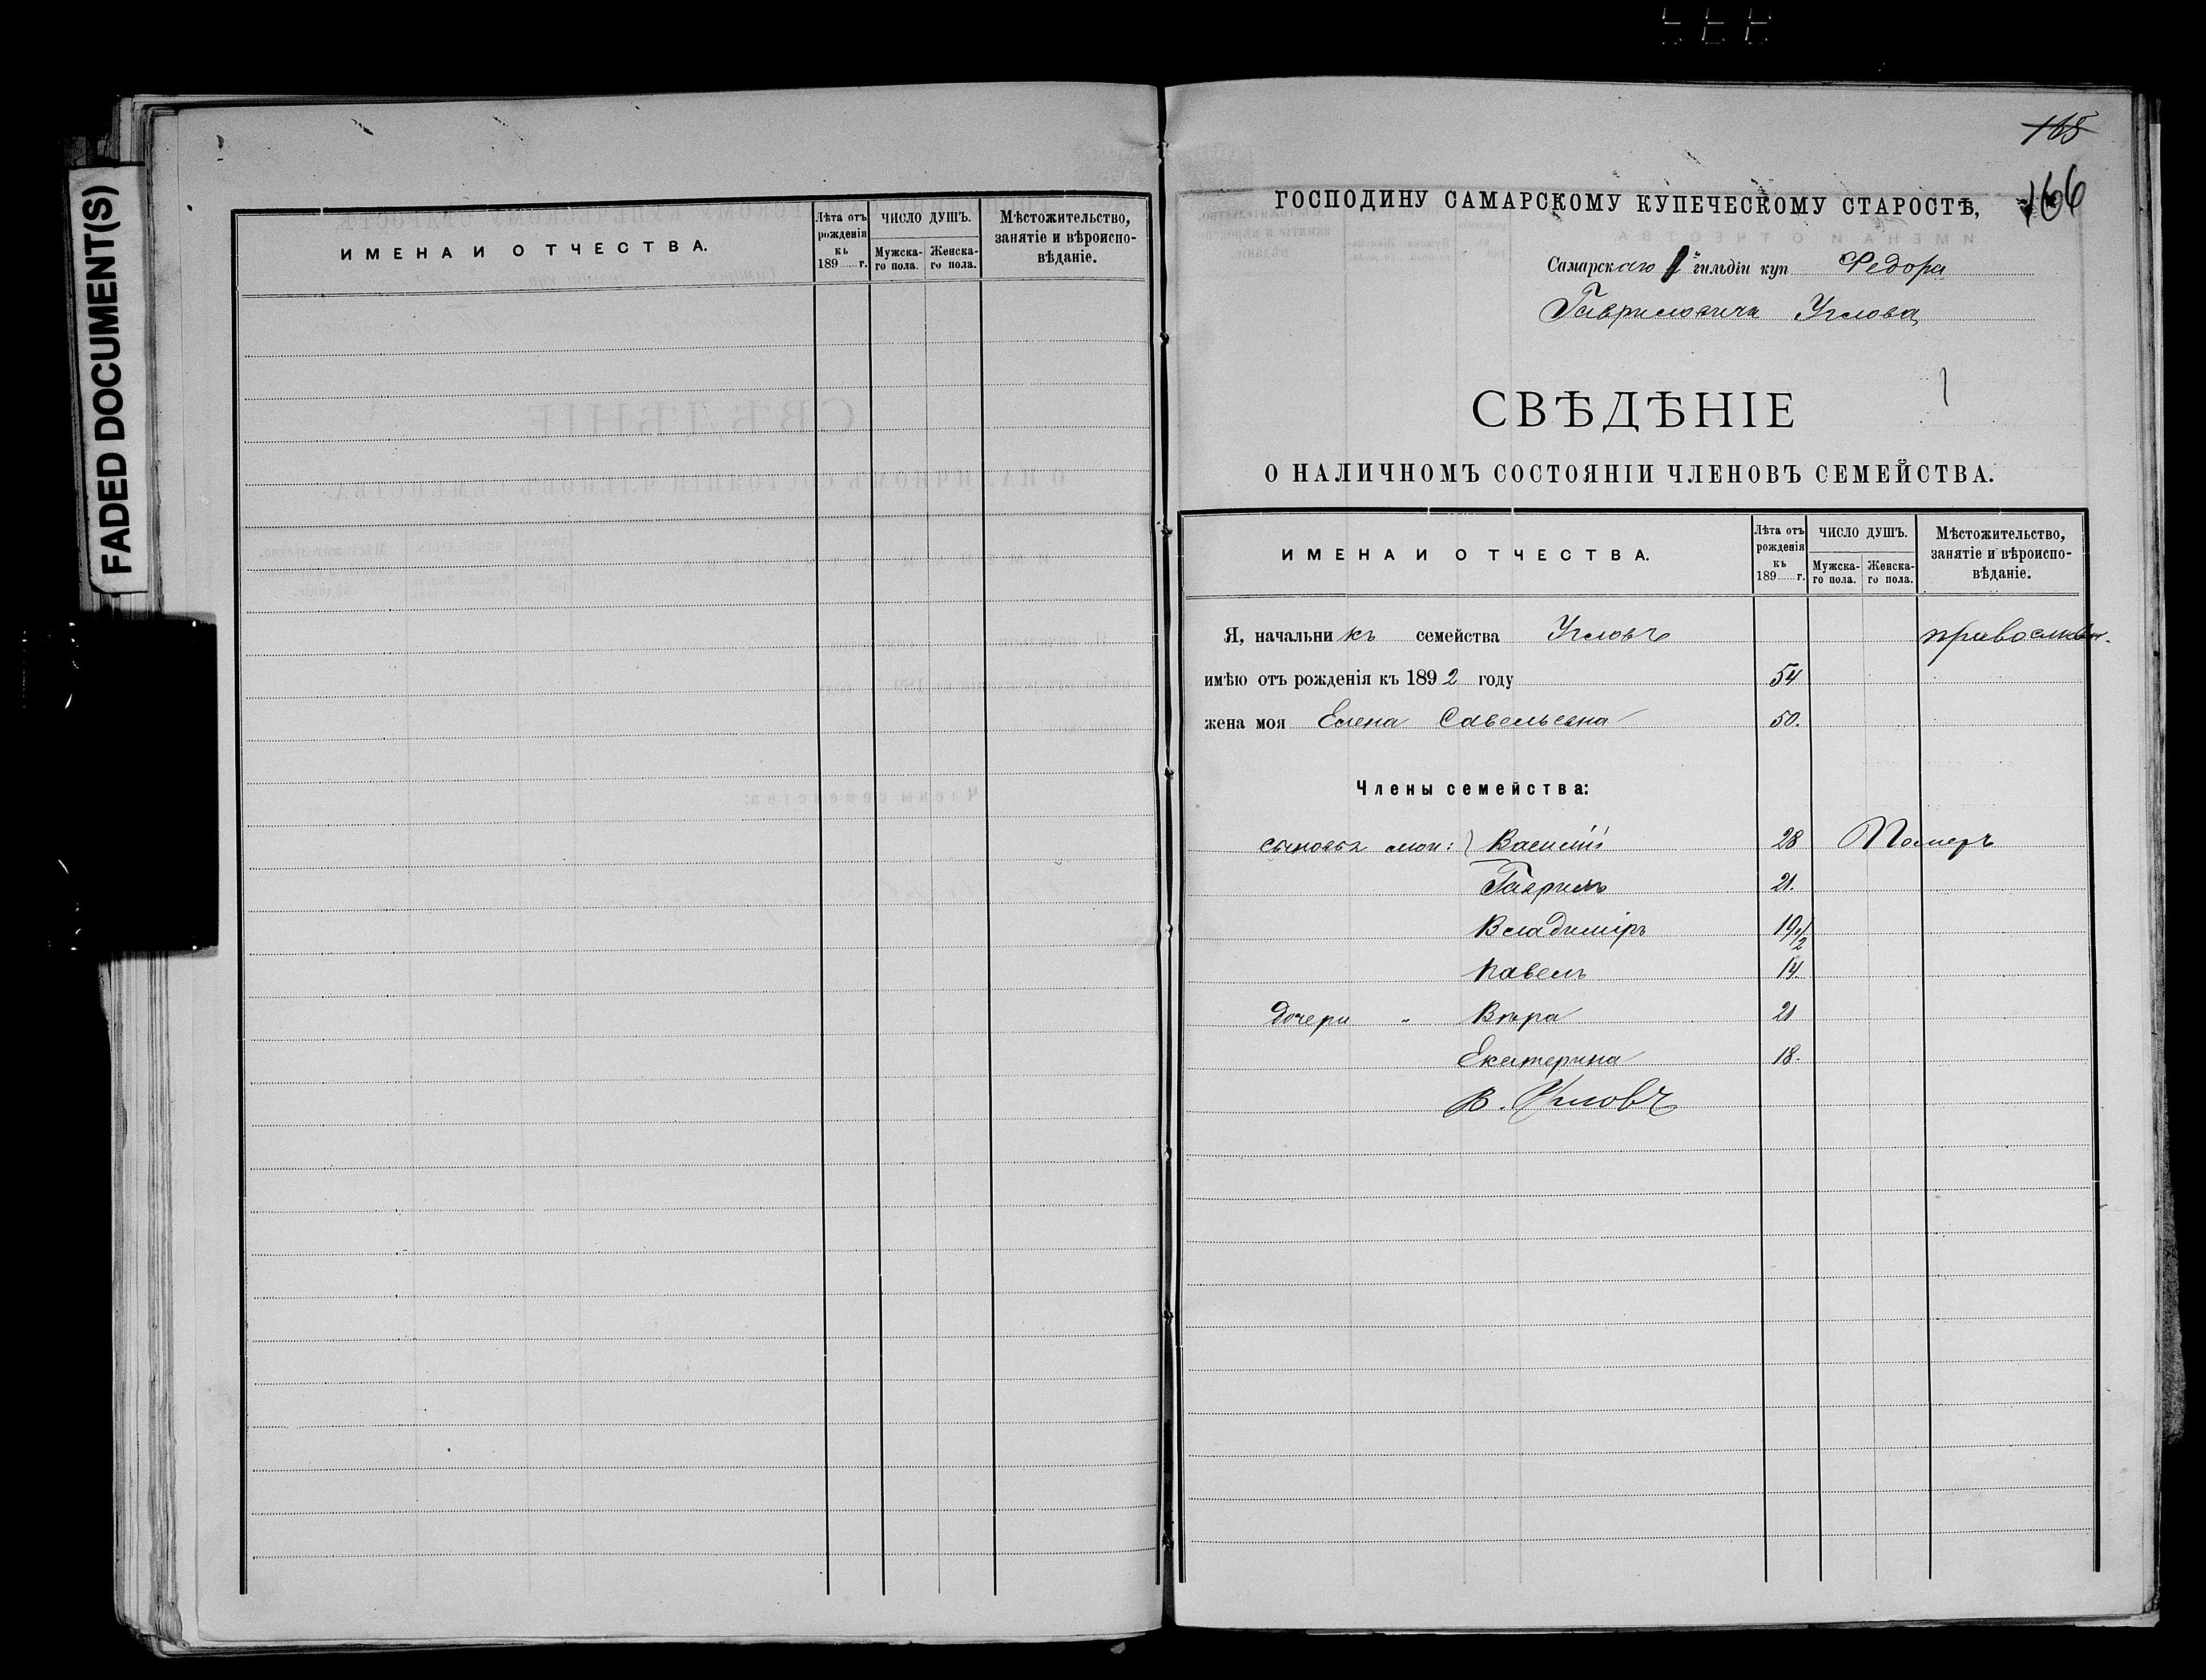 FADED DOCUMENT(S)
ИМЕНА И ОТЧЕСТВА.
Лѣта отъ рожденія къ 189......г.
ЧИСЛО ДУШЪ.
Мужска-го пола.
Женска-го пола.
Мѣстожительство, занятіе и вѣроиспо-вѣданіе.
165
166
ГОСПОДИНУ САМАРСКОМУ КУПЕЧЕСКОМУ СТАРОСТѢ,
Самарскаго 1й гильдіи куп Федора
Гавриловича Углова
СВѢДѢНІЕ
О НАЛИЧНОМЪ СОСТОЯНІИ ЧЛЕНОВЪ СЕМЕЙСТВА.
ИМЕНА И ОТЧЕСТВА.
Лѣта отъ рожденія къ 189......г.
ЧИСЛО ДУШЪ.
Мужска-го пола.
Женска-го пола.
Мѣстожительство, занятіе и вѣроиспо-вѣданіе.
Я, начальникъ семейства Угловъ православн.
имѣю отъ рожденія къ 1892 году 54
жена моя Елена Савельевна 50.
Члены семейства:
сыновья мои: Василій 28 Померъ
Гаврилъ 21.
Владиміръ 19 1/2
Павелъ 14.
Дочери " Вѣра 21
Екатерина 18.
В. Угловъ